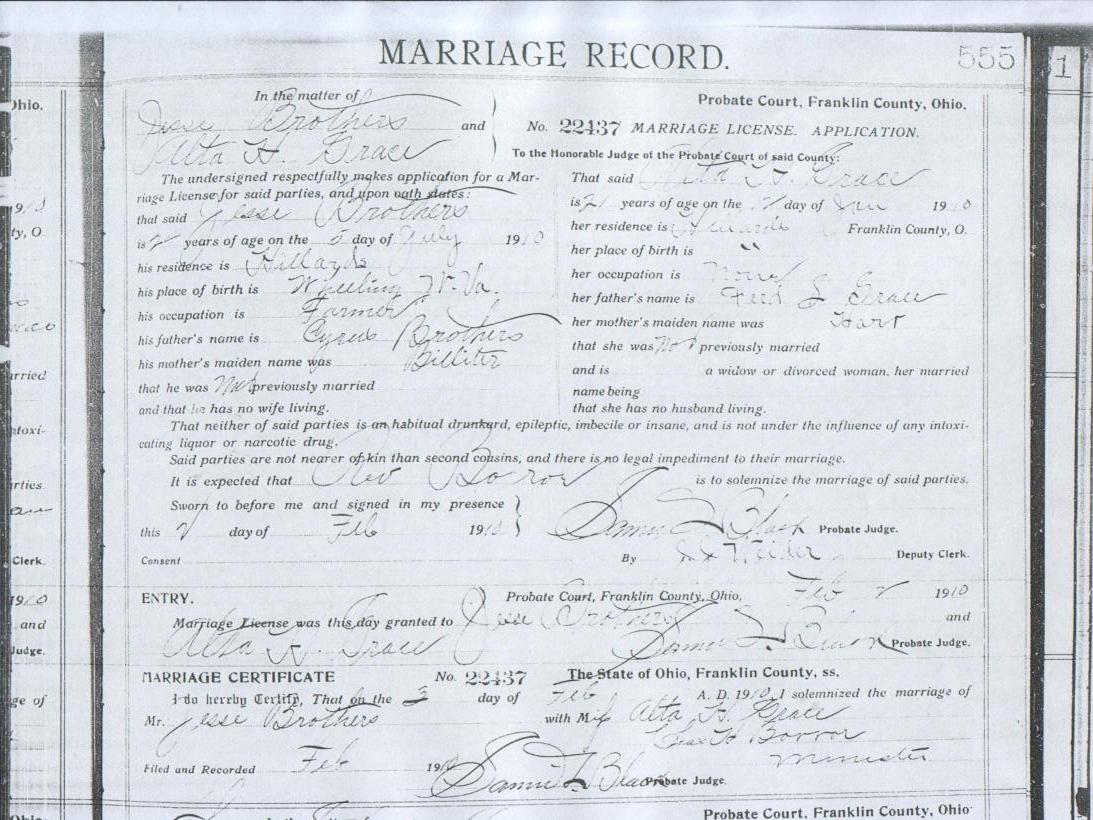 MARRIAGE RECORD.
555
1
Ohio.
In the matter of
Jesse Brothers and
Alta H. Grace
Probate Court, Franklin County, Ohio.
No. 22437 MARRIAGE LICENSE. APPLICATION.
To the Honorable Judge of the Probate Court of said County:
The undersigned respectfully makes application for a Mar-
riage License for said parties, and upon oath states:
that said Jesse Brothers
is years of age on the 5 day of July 1910
his residence is Hillards
his place of birth is Wheeling W. Va.
his occupation is Farmer
his father's name is Cyrus Brothers
his mother's maiden name was Billiter
that he was Not previously married
and that he has no wife living.
That said Alta H. Grace
is 21 years of age on the day of Jan 1910
her residence is Franklin County, O.
her place of birth is "
her occupation is None
her father's name is Ferd L Grace
her mother's maiden name was Hart
that she was Not previously married
and is a widow or divorced woman, her married
name being
that she has no husband living.
That neither of said parties is an habitual drunkard, epileptic, imbecile or insane, and is not under the influence of any intoxi-
cating liquor or narcotic drug.
Said parties are not nearer of kin than second cousins, and there is no legal impediment to their marriage.
It is expected that Rev Borror is to solemnize the marriage of said parties.
Sworn to before me and signed in my presence
this 2 day of Feb 1910
Samuel L Black Probate Judge.
Consent
By Deputy Clerk.
ENTRY.
Probate Court, Franklin County, Ohio, Feb 2 1910
Marriage License was this day granted to Jesse Brothers and
Alta H. Grace Samuel L Black Probate Judge.
MARRIAGE CERTIFICATE No. 22437 The State of Ohio, Franklin County, ss.
I do hereby Certify, That on the 3 day of Feb A. D. 1910, I solemnized the marriage of
Mr. Jesse Brothers with Miss Alta H. Grace
Borror
Minister
Filed and Recorded Feb 1910 Samuel L Black Probate Judge.
Probate Court, Franklin County, Ohio